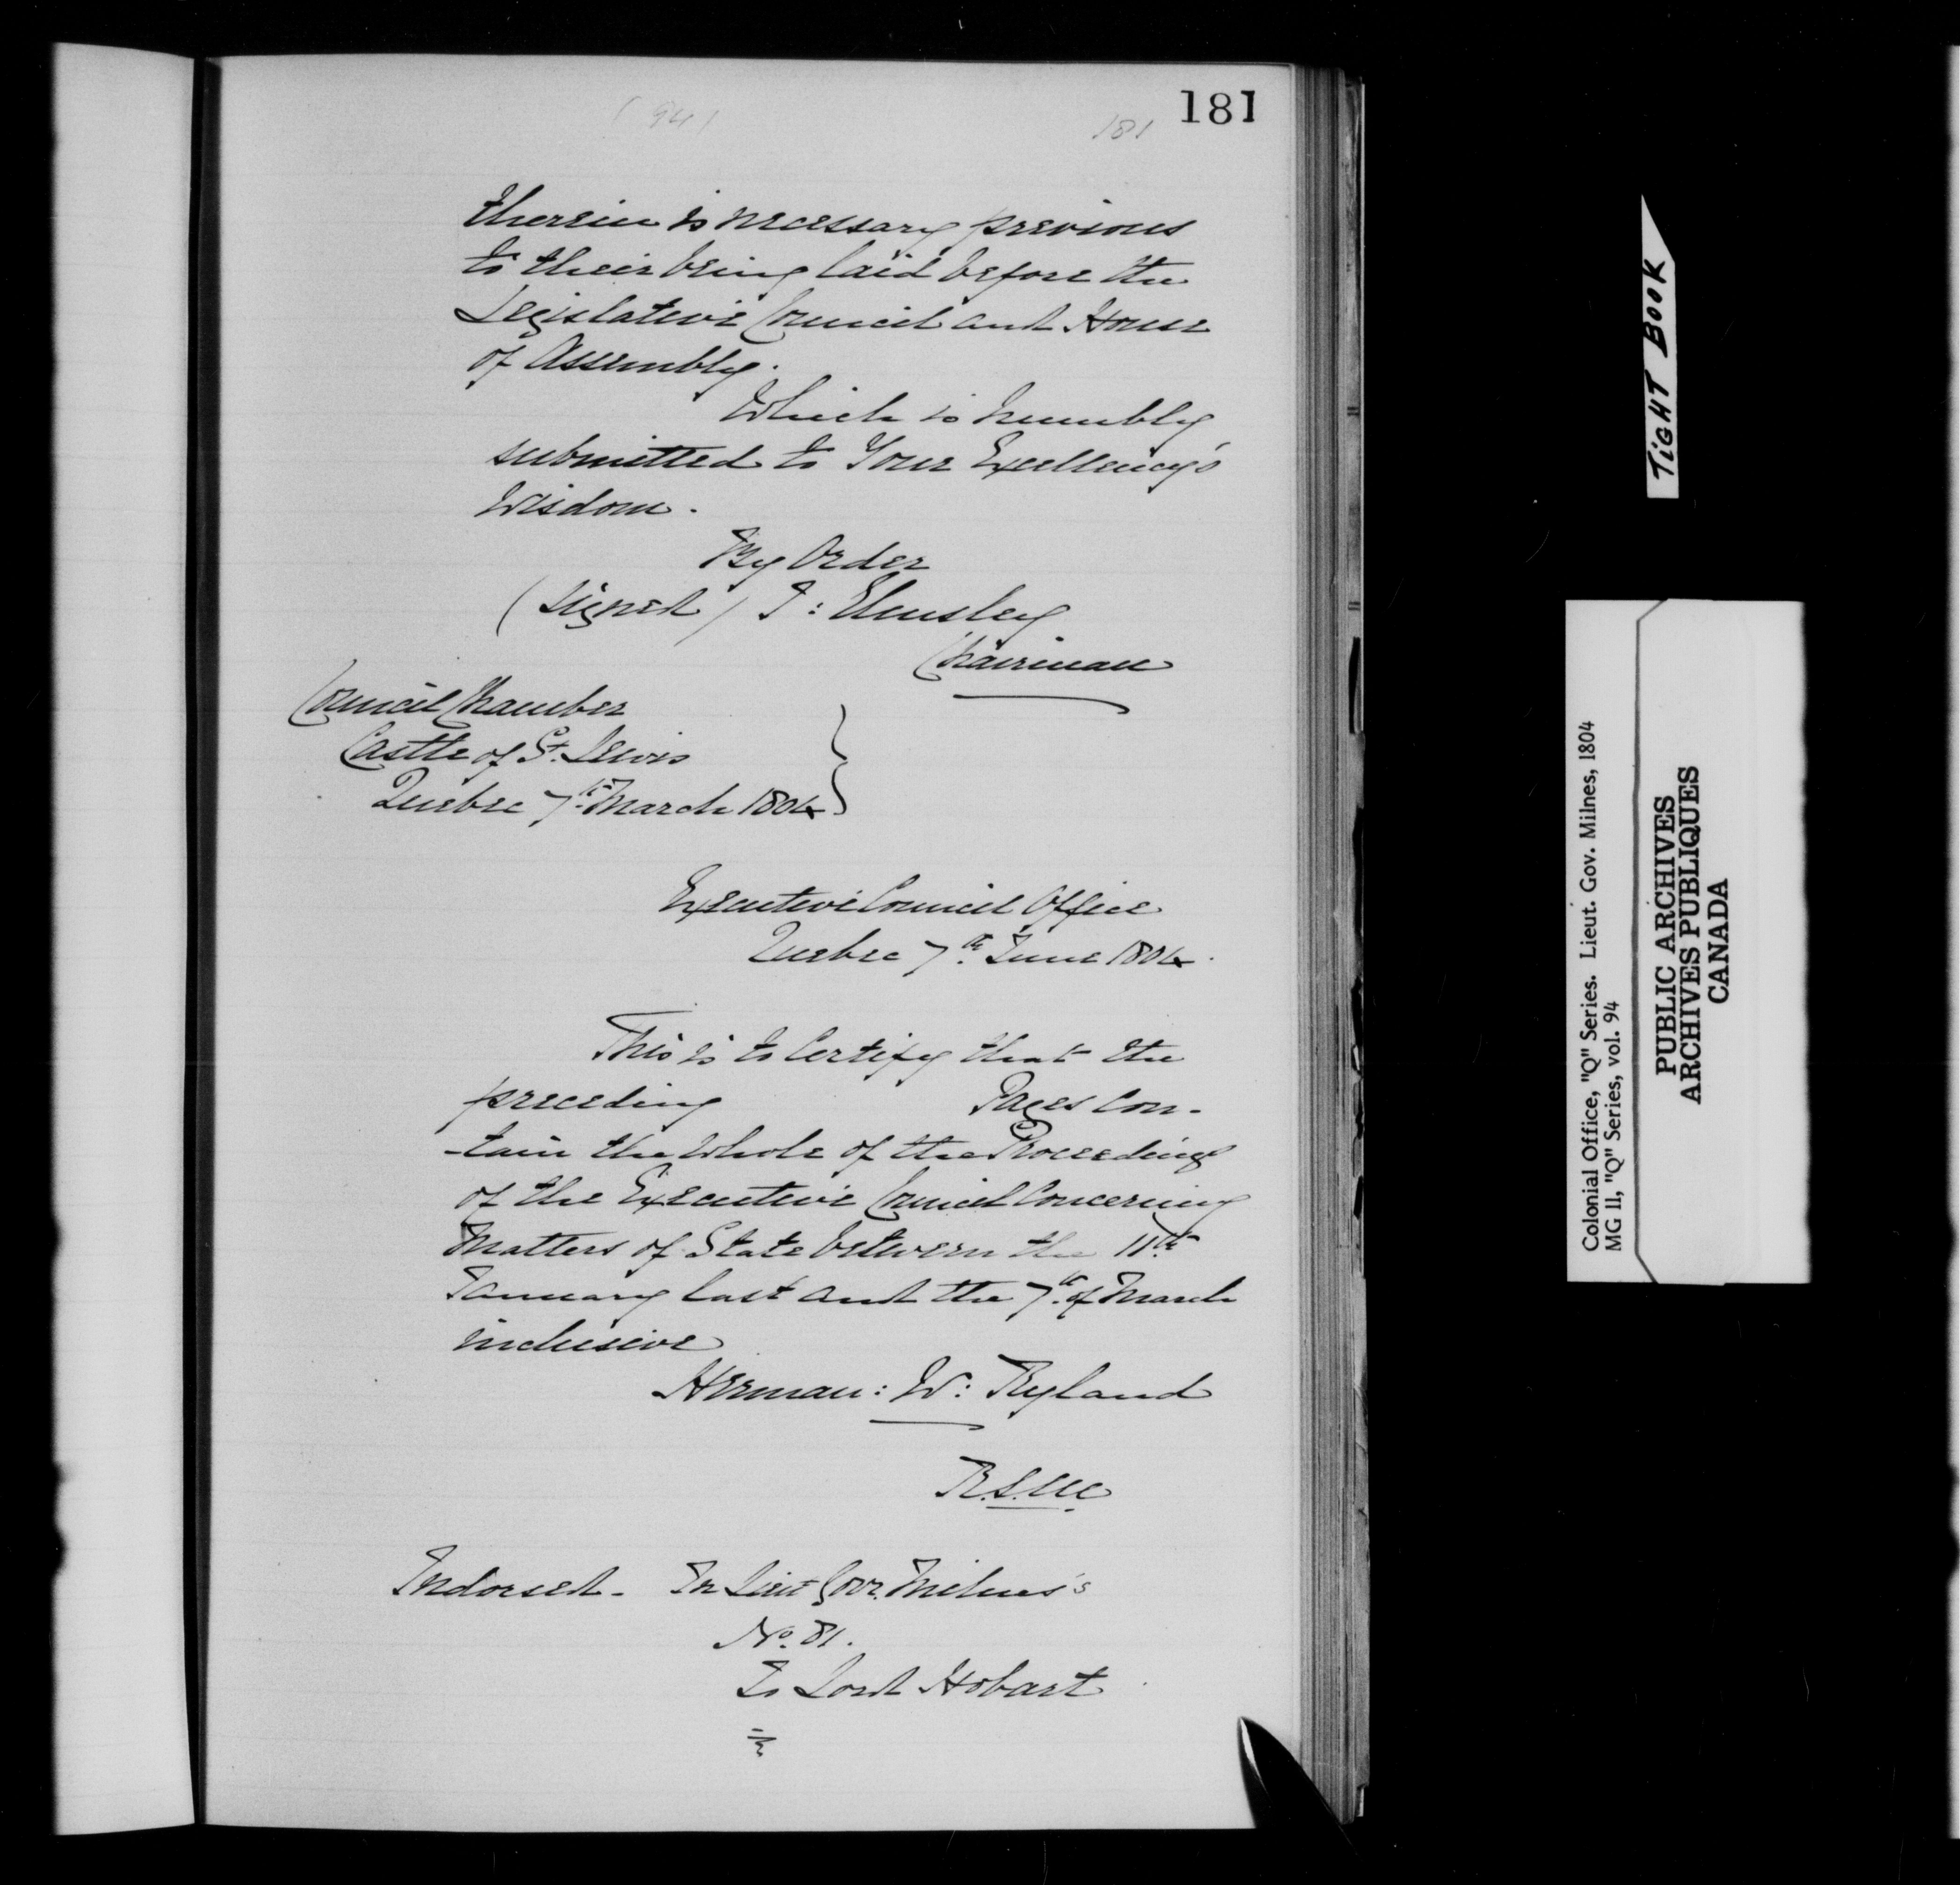 (94)
181
181
therein is necessary previous
to their being laid before the
Legislative Council and House
of Assembly.
Which is humbly
submitted to Your Excellency's
Wisdom.
By Order
(Signed) J: Elmsley
Chairman
Council Chamber
Castle of St. Lewis
Quebec 7th March 1804
Executive Council Office
Quebec 7th June 1804.
This is to Certify that the
preceding Pages Con-
-tain the Whole of the Proceedings
of the Executive Council Concerning
Matters of State between the 11th
January last and the 7th of March
inclusive
Herman: W: Ryland
Indorsed - In Lieut Govr. Milnes's
No. 81.
To Lord Hobart
TIGHT BOOK
Colonial Office, "Q" Series. Lieut. Gov. Milnes, 1804
MG 11, "Q" Series, vol. 94
PUBLIC ARCHIVES
ARCHIVES PUBLIQUES
CANADA